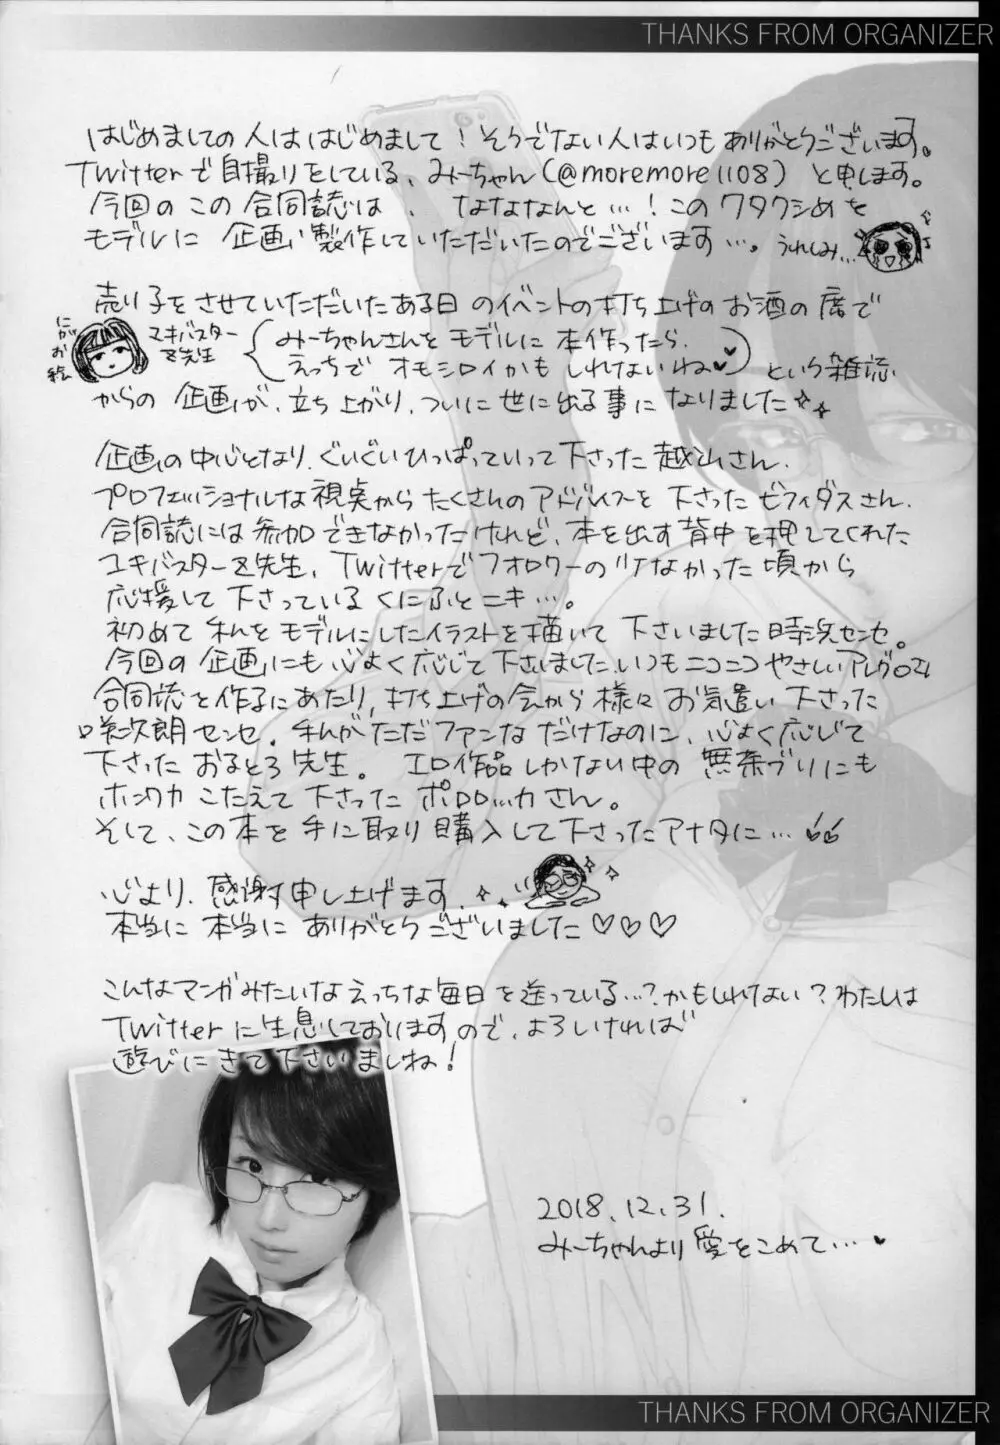 THANKS FROM ORGANIZER
はじめましての人ははじめまして！そうでない人はいつもありがとうございます。
Twitterで自撮りをしている、みーちゃん(@moremore1108)と申します。
今回のこの合同誌は、なななんと…！このワタクシめを
モデルに企画、製作していただいたのでございます…。うれしみ…
売り子をさせていただいたある日のイベントの打ち上げのお酒の席で
にがお絵
ユキバスターZ先生
みーちゃんさんをモデルに本作ったら、
えっちでオモシロイかもしれないね♥
という雑談
からの企画が、立ち上がり、ついに世に出る事になりました
企画の中心となり、ぐいぐいひっぱっていって下さった越山さん、
プロフェッショナルな視点からたくさんのアドバイスを下さったビフィダスさん、
合同誌には参加できなかったけれど、本を出す背中を押してくれた
ユキバスターZ先生、Twitterでフォロワーの少なかった頃から
応援して下さっているくにふとニキ…。
初めて私をモデルにしたイラストを描いて下さいました時浜センセ。
今回の企画にも心よく応じて下さいました、いつもニコニコやさしいアレグロさん
合同誌を作るにあたり、打ち上げの会から様々お気遣い下さった
咲次朗センセ、私がただファンなだけなのに、心よく応じて
下さったおるとろ先生。エロ作品しかない中の無茶ブリにも
ホンワカこたえて下さったポロロッカさん。
そして、この本を手に取り購入して下さったアナタに…
心より、感謝申し上げます。
本当に本当にありがとうございました♡♡♡
こんなマンガみたいなえっちな毎日を送っている…？かもしれない？わたしは
Twitterに生息しておりますので、よろしければ
遊びにきて下さいましね！
2018.12.31.
みーちゃんより愛をこめて…♥
THANKS FROM ORGANIZER